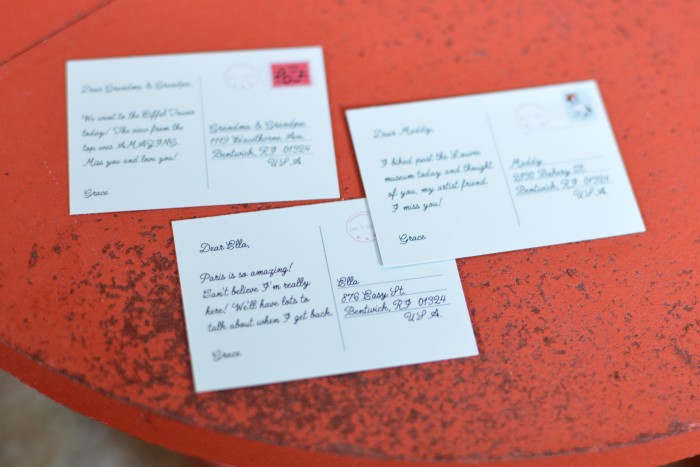 Dear Grandma & Grandpa,
We went to the Eiffel Tower
today! The view from the
top was AMAZING.
Miss you and love you!
Grace
Grandma & Grandpa
1119 Hawthorne Ave.
Bentwick, RI 01324
U.S.A.
Dear Maddy,
I biked past the Louvre
museum today and thought
of you, my artist friend.
I miss you!
Grace
Maddy
Bakery St.
Bentwick, RI 01324
U.S.A.
Dear Ella,
Paris is so amazing!
Can't believe I'm really
here! We'll have lots to
talk about when I get back.
Grace
Ella
876 Easy St.
Bentwick, RI 01324
U.S.A.